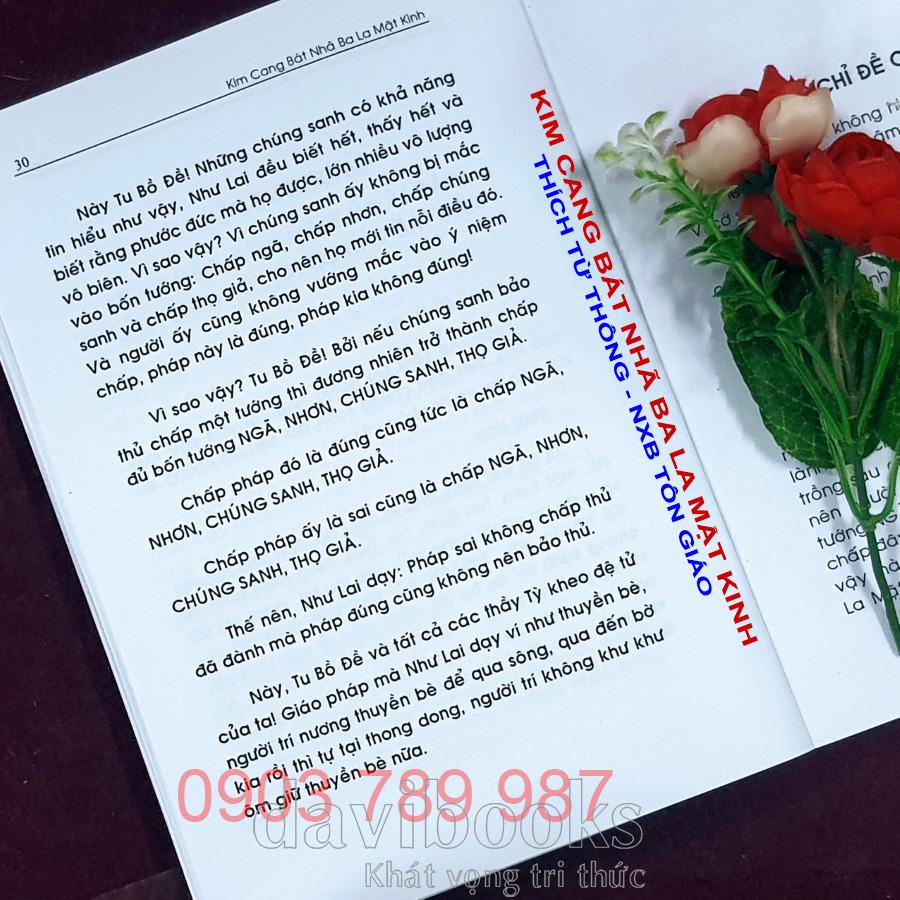 Kim Cang Bát Nhã Ba La Mật Kinh
30
Này Tu Bồ Đề! Những chúng sanh có khả năng
tin hiểu như vậy, Như Lai đều biết hết, thấy hết và
biết rằng phước đức mà họ được, lớn nhiều vô lượng
vô biên. Vì sao vậy? Vì chúng sanh ấy không bị mắc
vào bốn tướng: Chấp ngã, chấp nhơn, chấp chúng
sanh và chấp thọ giả, cho nên họ mới tin nỗi điều đó.
Và người ấy cũng không vướng mắc vào ý niệm
chấp, pháp này là đúng, pháp kia không đúng!
Vì sao vậy? Tu Bồ Đề! Bởi nếu chúng sanh bảo
thủ chấp một tướng thì đương nhiên trở thành chấp
đủ bốn tướng NGÃ, NHƠN, CHÚNG SANH, THỌ GIẢ.
Chấp pháp đó là đúng cũng tức là chấp NGÃ,
NHƠN, CHÚNG SANH, THỌ GIẢ.
Chấp pháp ấy là sai cũng là chấp NGÃ, NHƠN,
CHÚNG SANH, THỌ GIẢ.
Thế nên, Như Lai dạy: Pháp sai không chấp thủ
đã đành mà pháp đúng cũng không nên bảo thủ.
Này, Tu Bồ Đề và tất cả các thầy Tỳ kheo đệ tử
của ta! Giáo pháp mà Như Lai dạy ví như thuyền bè,
người trí nương thuyền bè để qua sông, qua đến bờ
kia rồi thì tự tại thong dong, người trí không khư khư
ôm giữ thuyền bè nữa.
KIM CANG BÁT NHÃ BA LA MẬT KINH
THÍCH TỪ THÔNG - NXB TÔN GIÁO
CHỈ ĐỀ
không
lành
trồng sau
nên người
tướng
chấp đây
vậy
La Mật
0903 789 987
davibooks
Khát vọng tri thức